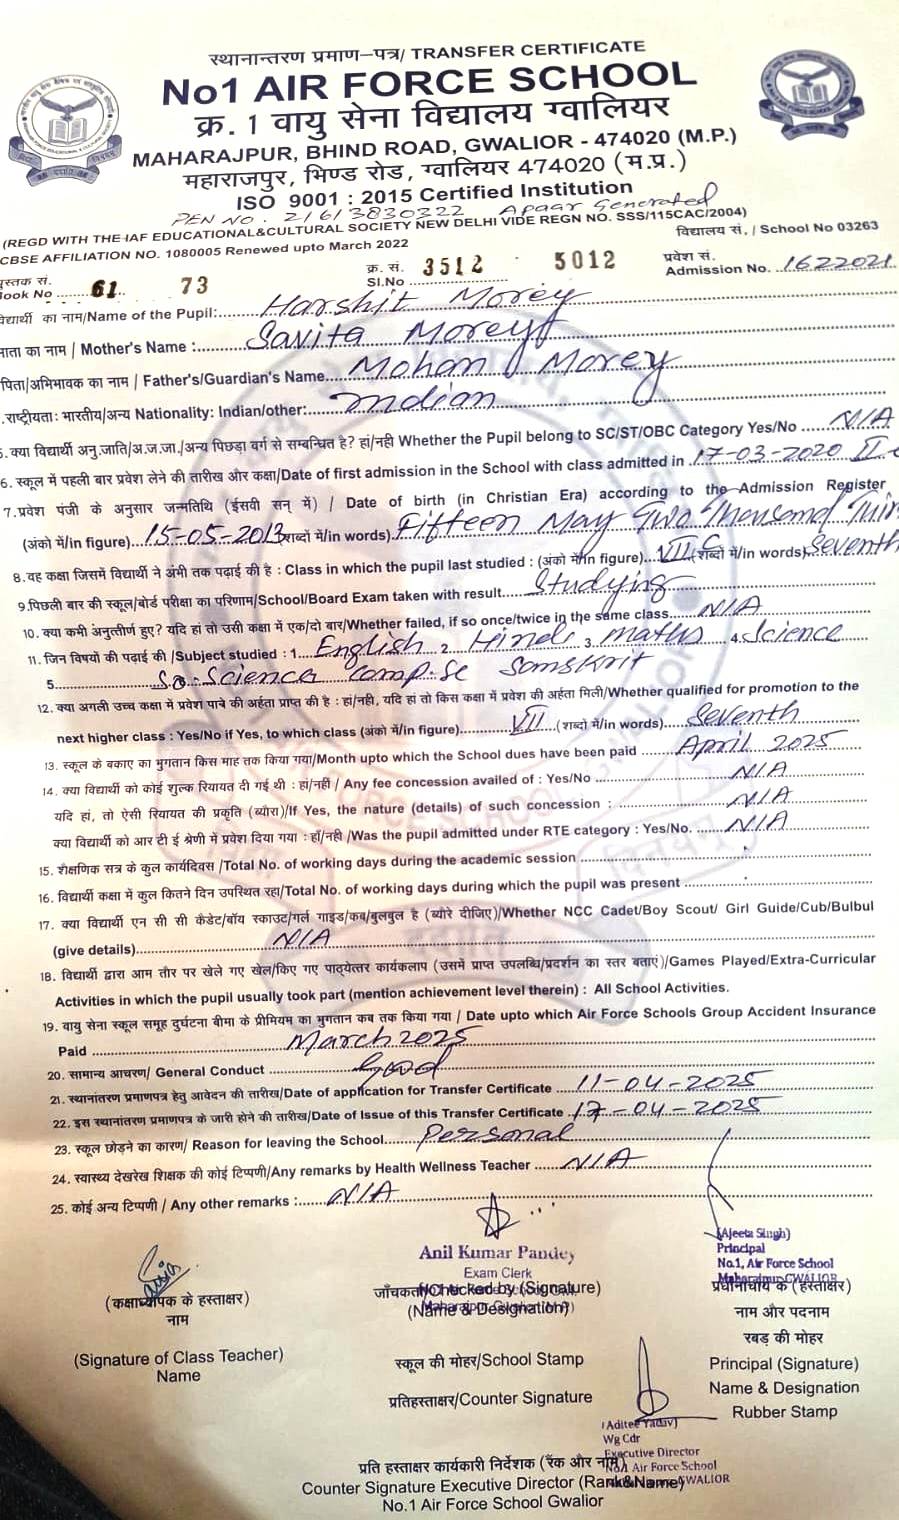 स्थानान्तरण प्रमाण–पत्र/ TRANSFER CERTIFICATE
No1 AIR FORCE SCHOOL
क्र. 1 वायु सेना विद्यालय ग्वालियर
MAHARAJPUR, BHIND ROAD, GWALIOR - 474020 (M.P.)
महाराजपुर, भिण्ड रोड, ग्वालियर 474020 (म.प्र.)
ISO 9001 : 2015 Certified Institution
PEN NO. 21613830322 Apaar Generated
(REGD WITH THE IAF EDUCATIONAL&CULTURAL SOCIETY NEW DELHI VIDE REGN NO. SSS/115CAC/2004)
CBSE AFFILIATION NO. 1080005 Renewed upto March 2022
विद्यालय सं. / School No 03263
पुस्तक सं. क्र. सं. प्रवेश सं.
Book No 61 73 Sl.No 3512 5012 Admission No. 1622021
विद्यार्थी का नाम/Name of the Pupil: Harshit Morey
माता का नाम / Mother's Name : Savita Morey
पिता/अभिभावक का नाम / Father's/Guardian's Name Mohan Morey
राष्ट्रीयताः भारतीय/अन्य Nationality: Indian/other: Indian
5. क्या विद्यार्थी अनु.जाति/अ.ज.जा./अन्य पिछड़ा वर्ग से सम्बन्धित है? हां/नही Whether the Pupil belong to SC/ST/OBC Category Yes/No N/A
6. स्कूल में पहली बार प्रवेश लेने की तारीख और कक्षा/Date of first admission in the School with class admitted in 17-03-2020 II
7. प्रवेश पंजी के अनुसार जन्मतिथि (ईसवी सन् में) / Date of birth (in Christian Era) according to the Admission Register
(अंको में/in figure) 15-05-2013 (शब्दों में/in words) Fifteen May Two Thousand
8. वह कक्षा जिसमें विद्यार्थी ने अभी तक पढ़ाई की है : Class in which the pupil last studied : (अंको में/in figure) VII C (शब्दों में/in words) Seventh
9. पिछली बार की स्कूल/बोर्ड परीक्षा का परिणाम/School/Board Exam taken with result Studying
10. क्या कभी अनुत्तीर्ण हुए? यदि हां तो उसी कक्षा में एक/दो बार/Whether failed, if so once/twice in the same class N/A
11. जिन विषयों की पढ़ाई की /Subject studied : 1 English 2 Hindi 3 maths 4 Science
5 So. Science Comp. Sc Samskrit
12. क्या अगली उच्च कक्षा में प्रवेश पाने की अर्हता प्राप्त की है : हां/नही, यदि हां तो किस कक्षा में प्रवेश की अर्हता मिली/Whether qualified for promotion to the
next higher class : Yes/No if Yes, to which class (अंको में/in figure) VII (शब्दों में/in words) Seventh
13. स्कूल के बकाए का भुगतान किस माह तक किया गया/Month upto which the School dues have been paid April 2025
14. क्या विद्यार्थी को कोई शुल्क रियायत दी गई थी : हां/नहीं / Any fee concession availed of : Yes/No N/A
यदि हां, तो ऐसी रियायत की प्रकृति (ब्यौरा)/If Yes, the nature (details) of such concession : N/A
क्या विद्यार्थी को आर टी ई श्रेणी मे प्रवेश दिया गया : हाँ/नही /Was the pupil admitted under RTE category : Yes/No. N/A
15. शैक्षणिक सत्र के कुल कार्यदिवस /Total No. of working days during the academic session
16. विद्यार्थी कक्षा में कुल कितने दिन उपस्थित रहा/Total No. of working days during which the pupil was present
17. क्या विद्यार्थी एन सी सी कैडेट/बॉय स्काउट/गर्ल गाइड/कब/बुलबुल है (ब्यौरे दीजिए)/Whether NCC Cadet/Boy Scout/ Girl Guide/Cub/Bulbul
(give details) N/A
18. विद्यार्थी द्वारा आम तौर पर खेले गए खेल/किए गए पाठ्येत्तर कार्यकलाप (उसमें प्राप्त उपलब्धि/प्रदर्शन का स्तर बताएं)/Games Played/Extra-Curricular
Activities in which the pupil usually took part (mention achievement level therein) : All School Activities.
19. वायु सेना स्कूल समूह दुर्घटना बीमा के प्रीमियम का भुगतान कब तक किया गया / Date upto which Air Force Schools Group Accident Insurance
Paid March 2025
20. सामान्य आचरण/ General Conduct Good
21. स्थानांतरण प्रमाणपत्र हेतु आवेदन की तारीख/Date of application for Transfer Certificate 11-04-2025
22. इस स्थानांतरण प्रमाणपत्र के जारी होने की तारीख/Date of Issue of this Transfer Certificate 17-04-2025
23. स्कूल छोड़ने का कारण/ Reason for leaving the School Personal
24. स्वास्थ्य देखरेख शिक्षक की कोई टिप्पणी/Any remarks by Health Wellness Teacher N/A
25. कोई अन्य टिप्पणी / Any other remarks : N/A
(Ajeeta Singh)
Principal
No.1, Air Force School
Maharajpur GWALIOR
Anil Kumar Pandey
Exam Clerk
(कक्षाध्यापक के हस्ताक्षर)
नाम
(Signature of Class Teacher)
Name
जाँचकर्ता/Checked by (Signature)
(Name & Designation)
स्कूल की मोहर/School Stamp
प्रतिहस्ताक्षर/Counter Signature
प्रधानाचार्य के (हस्ताक्षर)
नाम और पदनाम
रबड़ की मोहर
Principal (Signature)
Name & Designation
Rubber Stamp
(Aditee Yadav)
Wg Cdr
Executive Director
No.1 Air Force School
GWALIOR
प्रति हस्ताक्षर कार्यकारी निर्देशक (रैंक और नाम)
Counter Signature Executive Director (Rank&Name)
No.1 Air Force School Gwalior